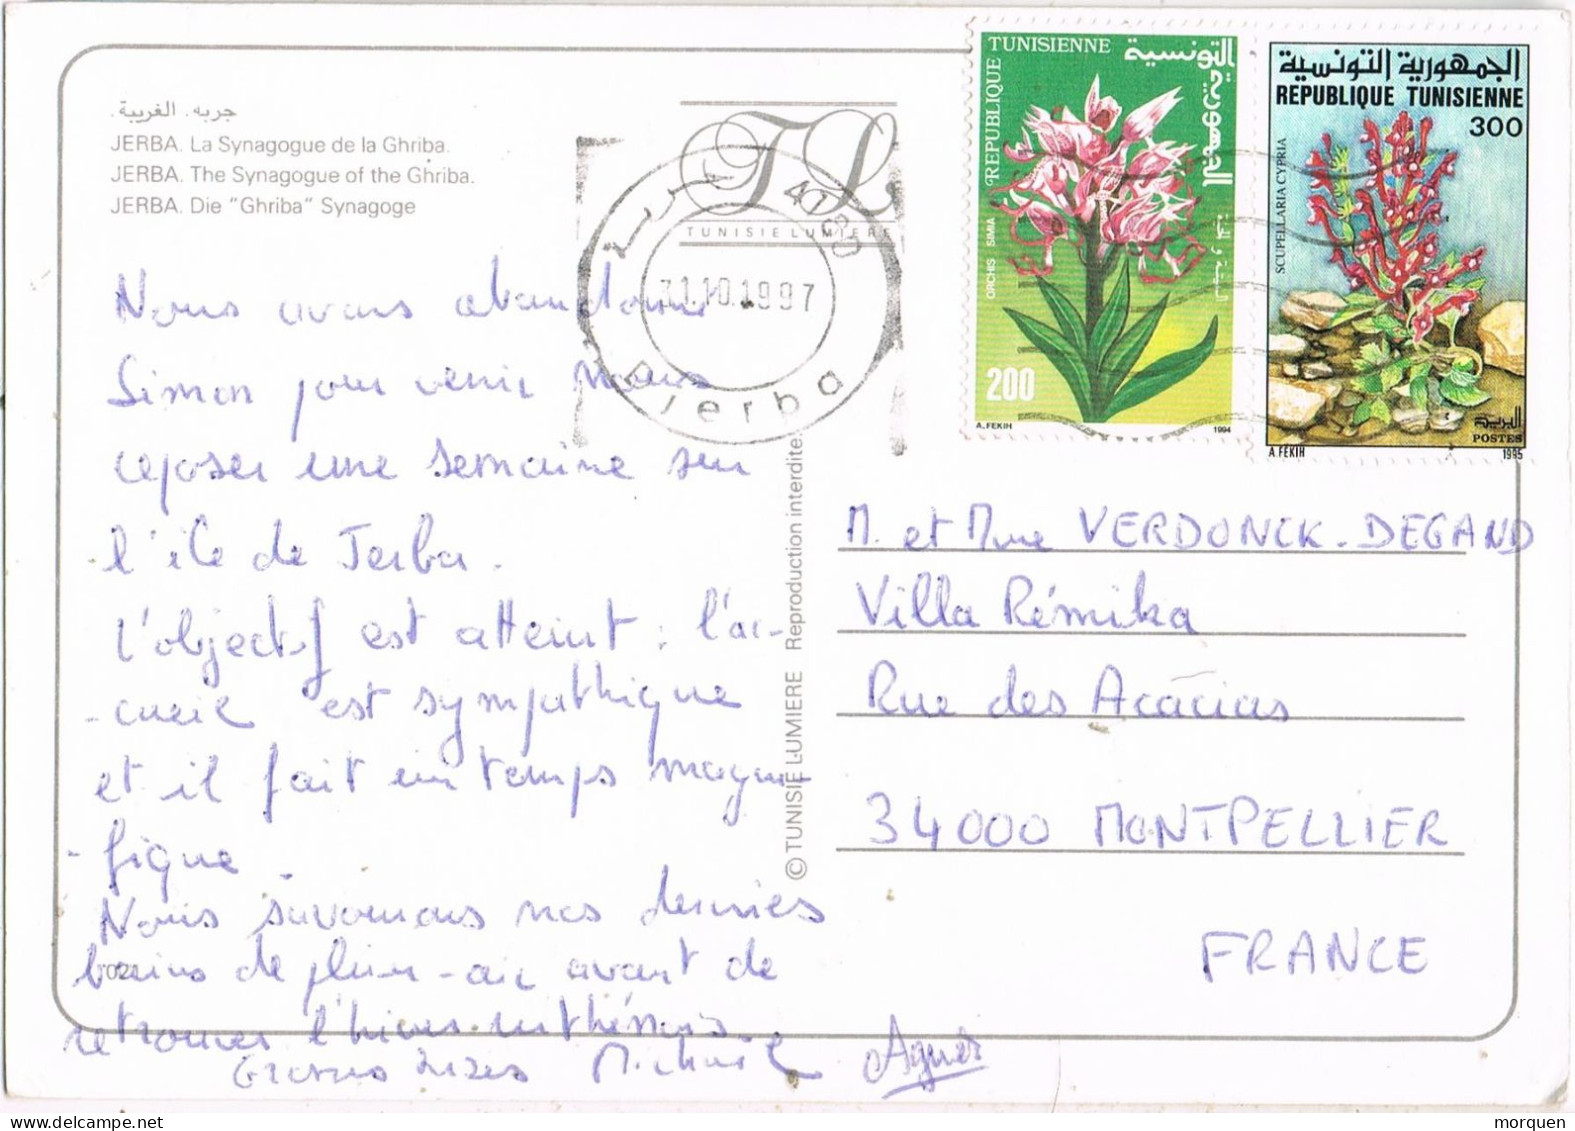 جربه. الغريبة.
JERBA. La Synagogue de la Ghriba.
JERBA. The Synagogue of the Ghriba.
JERBA. Die "Ghriba" Synagoge
TL
TUNISIE LUMIERE
جربة
4180
31.10.1997
Djerba
REPUBLIQUE TUNISIENNE
الجمهورية التونسية
ORCHIS SIMIA
200
A. FEKIH
1994
الجمهورية التونسية
REPUBLIQUE TUNISIENNE
300
SCUPELLARIA CYPRIA
البريد
POSTES
A. FEKIH
1995
Nous avons abandonné
Simon pour venir nous
reposer une semaine sur
l'île de Jerba.
L'objectif est atteint : l'ac-
-cueil est sympathique
et il fait un temps magni
-fique.
Nous savourons nos derniers
bains de plein-air avant de
retrouver l'hiver
Grosses bizes Michaël Agnès
© TUNISIE LUMIERE Reproduction interdite.
M. et Mme VERDONCK-DEGAND
Villa Rémika
Rue des Acacias
34000 MONTPELLIER
FRANCE
morquen